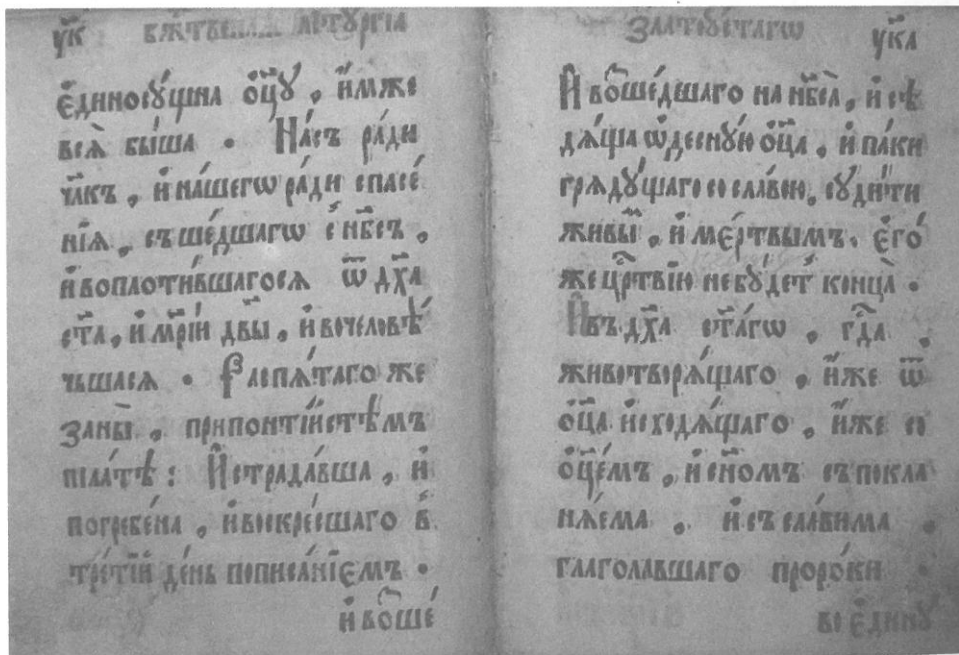 у҃к бж҃твеная литоургїа
є҆диносꙋ́щна ѻ҆ц҃ꙋ̀, и҆́мже
всѧ̑ бы́ша. На́съ ра́ди
чл҃къ, и҆ на́шегѡ ра́ди спасе́
нїѧ, съше́дшагѡ с нб҃съ,
и҆ воплоти́вшагосѧ ѿ дх҃а
ст҃а, и҆ мр҃і́и дв҃ы, и҆ вочеловѣ́
чьшасѧ. Распѧ́таго же
за ны̀, при понті́йстѣмъ
пїла́тѣ: И҆ страда́вша, и҆
погребе́на, и҆ воскре́сшаго в
тре́тїй де́нь по писа́нїємъ.
и҆ воше́
златоꙋ́стагѡ у҃ка
И҆ воше́дшаго на нб҃са̀, и҆ сѣ
дѧ́ща ѡ҆деснꙋ́ю ѻ҆ц҃а̀, и҆ па́ки
грѧдꙋ́щаго со сла́вою, сꙋди́ти
живы́м, и҆ ме́ртвымъ. є҆го́
же цр҃твїю не бꙋ́дет конца̀.
И҆ въ дх҃а ст҃а́гѡ, гд҃а,
животворѧ́щаго, и҆́же ѿ
ѻ҆ц҃а̀ и҆сходѧ́щаго, и҆́же со
ѻ҆ц҃е́мъ, и҆ сн҃омъ съпокла
нѧ́ема, и҆ съсла́вима
глаголавшаго проро́ки.
во є҆ди́нꙋ